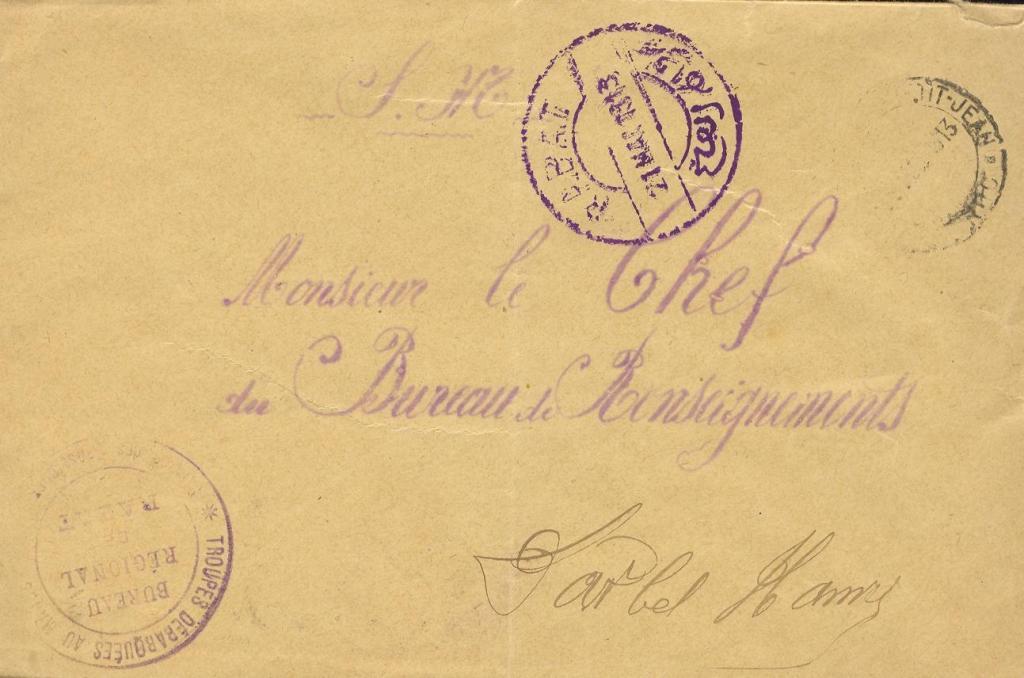 S. M.
RABAT
21 MAR 1913
Monsieur le Chef
du Bureau de Renseignements
Dar bel Hamry
TROUPES DÉBARQUÉES AU
BUREAU
RÉGIONAL
DE
RABAT